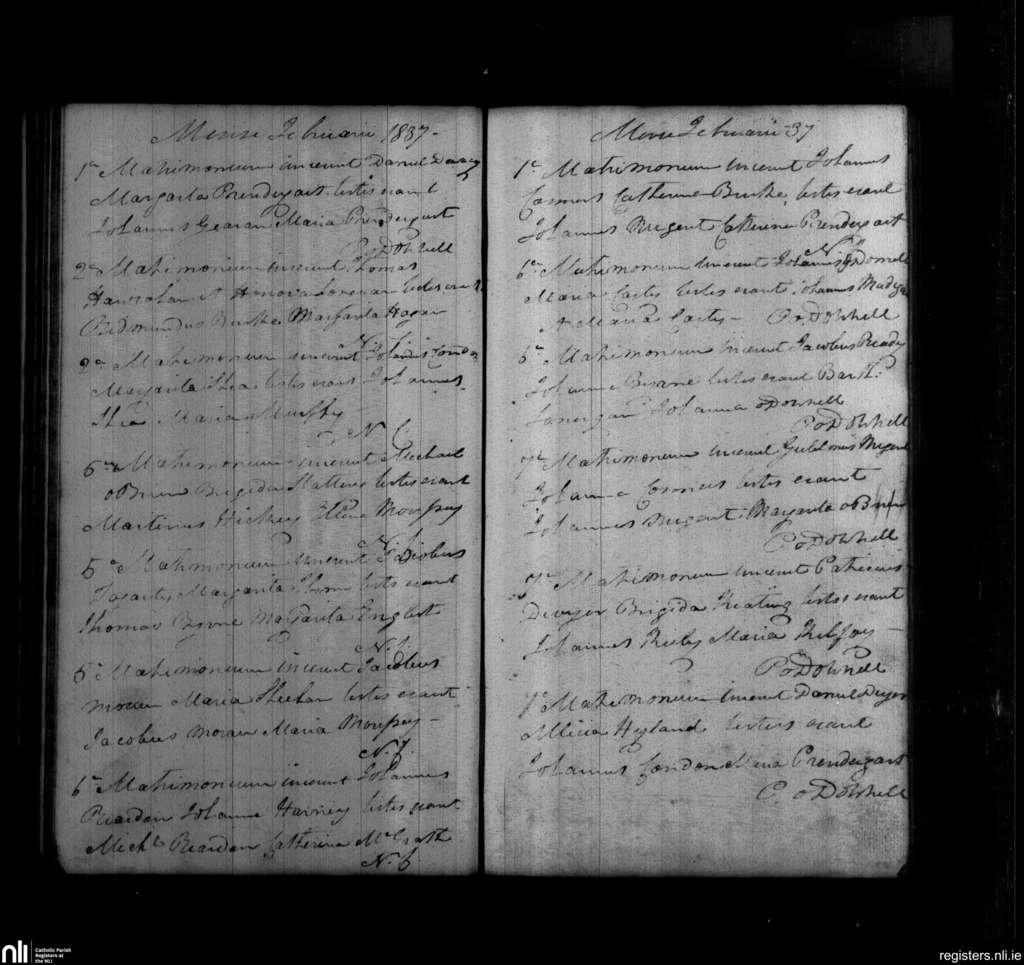 Mense Februarii 1837-
1a Matrimonium inierunt Daniel
Margarita Prendergast testes erant
Johannes Gearan Maria Prendergast
P. oDonnell
2a Matrimonium inierunt Thomas
Hanrahan et Honora Lonergan testes erant
Redmundus Burke Margarita Hogan
N. f.
2a Matrimonium inierunt Johannes Condon
Margarita Shea testes erant Johannes
Shea Maria Murphy
N f.
5a Matrimonium inierunt Michael
oBrien Brigida testes erant
Martinus Hickey Elena
N. f.
5a Matrimonium inierunt Jacobus
Fogarty Margarita testes erant
Thomas Byrne Margarita English
N. f.
5a Matrimonium inierunt Jacobus
Moran Maria Sheehan testes erant
Jacobus Moran Maria
N. f.
6a Matrimonium inierunt Johannes
Reardon Johanna Harney testes erant
Michl Reardon Catherina McGrath
N. f
Mense Februarii -37
1a Matrimonium inierunt Johannes
Connors Catherine Burke, testes erant
Johannes Nugent Catherine Prendergast
N. f.
6a Matrimonium inierunt Johannes oDonnell
Maria testes erant Johannes
P. oDonnell
6a Matrimonium inierunt Jacobus Ready
Johanna Byrne testes erant Barth:
Lonergan Johanna oDonnell
P. oDonnell
7a Matrimonium inierunt Gulielmus Nugent
Johanna Connors testes erant
Johannes Nugent Margarita oBrien
P. oDonnell
7a Matrimonium inierunt Patricius
Dwyer Brigida Keating testes erant
Johannes Maria Kilfoy -
P. oDonnell
7a Matrimonium inierunt Daniel Dwyer
Alicia Hyland testes erant
Johannes Condon Maria Prendergast
P. oDonnell
nli
Catholic Parish
Registers at
the NLI
registers.nli.ie